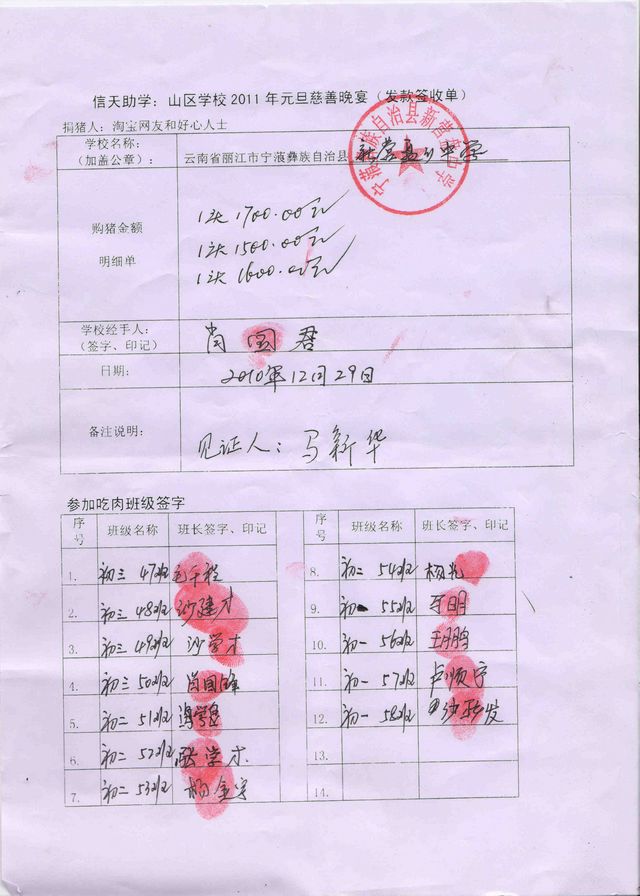 信天助学：山区学校 2011 年元旦慈善晚宴（发款签收单）
捐猪人：淘宝网友和好心人士
学校名称：
（加盖公章）：
云南省丽江市宁蒗彝族自治县
购猪金额
明细单
1头 1700.00元
1头 1500.00元
1头 1600.00元
学校经手人：
（签字、印记）
肖国君
日期：
2010年12月29日
备注说明：
见证人：马新华
参加吃肉班级签字
序号 班级名称 班长签字、印记 序号 班级名称 班长签字、印记
1. 初三 47班
2. 初三 48班 沙建才
3. 初三 49班 沙学才
4. 初三 50班 肖国峰
5. 初二 51班
6. 初二 52班 学才
7. 初二 53班 杨金宇
8. 初二 54班
9. 初 55班
10. 初一 56班 王鹏
11. 初一 57班 卢顺宁
12. 初一 58班
13.
14.